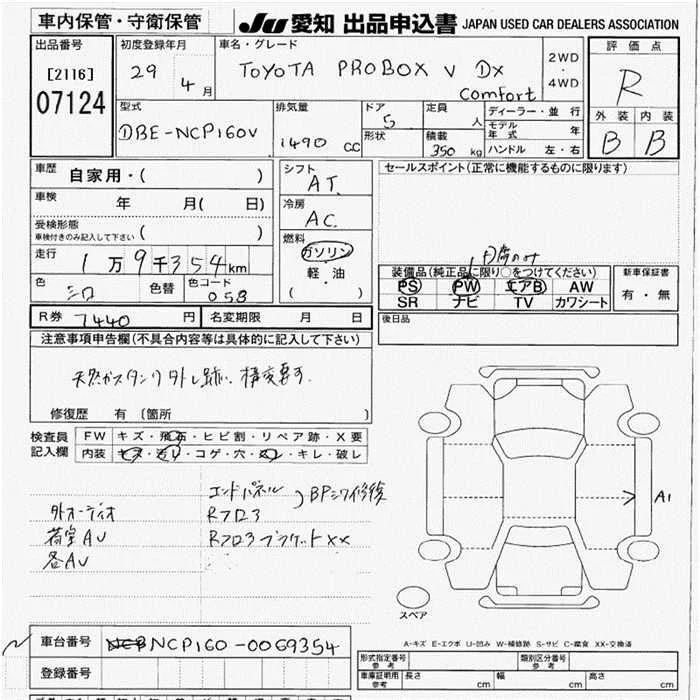 車内保管・守衛保管
JU 愛知 出品申込書 JAPAN USED CAR DEALERS ASSOCIATION
出品番号
[2116]
07124
初度登録年月
29
4月
車名・グレード
TOYOTA PROBOX V DX
comfort
2WD
・
4WD
評価点
R
外装 内装
B B
型式
DBE-NCP160V
排気量
1490 cc
ドア
5
形状
定員
人
積載
350 kg
ディーラー・並行
モデル年式 年
ハンドル 左・右
車歴
自家用・( )
車検
年 月( 日)
受検形態
車検付きのみ記入して下さい ( )
走行
1万9千354km
色
シロ
色替
色コード
058
シフト
AT.
冷房
AC.
燃料
ガソリン
軽・油
( )
セールスポイント(正常に機能するものに限ります)
装備品(純正品に限り○をつけてください)
PS PW エアB AW
SR ナビ TV カワシート
新車保証書
有・無
R券 7440 円
名変期限 月 日
後日品
注意事項申告欄(不具合内容等は具体的に記入して下さい)
天然ガスタンク外し跡い 構変要す.
修復歴 有 〔箇所 〕
検査員
記入欄
FW キズ・飛石・ヒビ割・リペア跡・X要
内装 キズ・汚レ・コゲ・穴・スレ・キレ・破レ
エンドパネル
Rフロ3
BPシワ修後
Rフロ3ブラケットXX
外オーディオ
荷室AU
各AU
A1
スペア
A-キズ E-エクボ U-凹み W-補修跡 S-サビ C-腐食 XX-交換済
車台番号 NCP160-0069354
登録番号
形式指定番号 参考
類別区分番号 参考
車庫証明用 参考 長さ cm 幅 cm 高さ cm